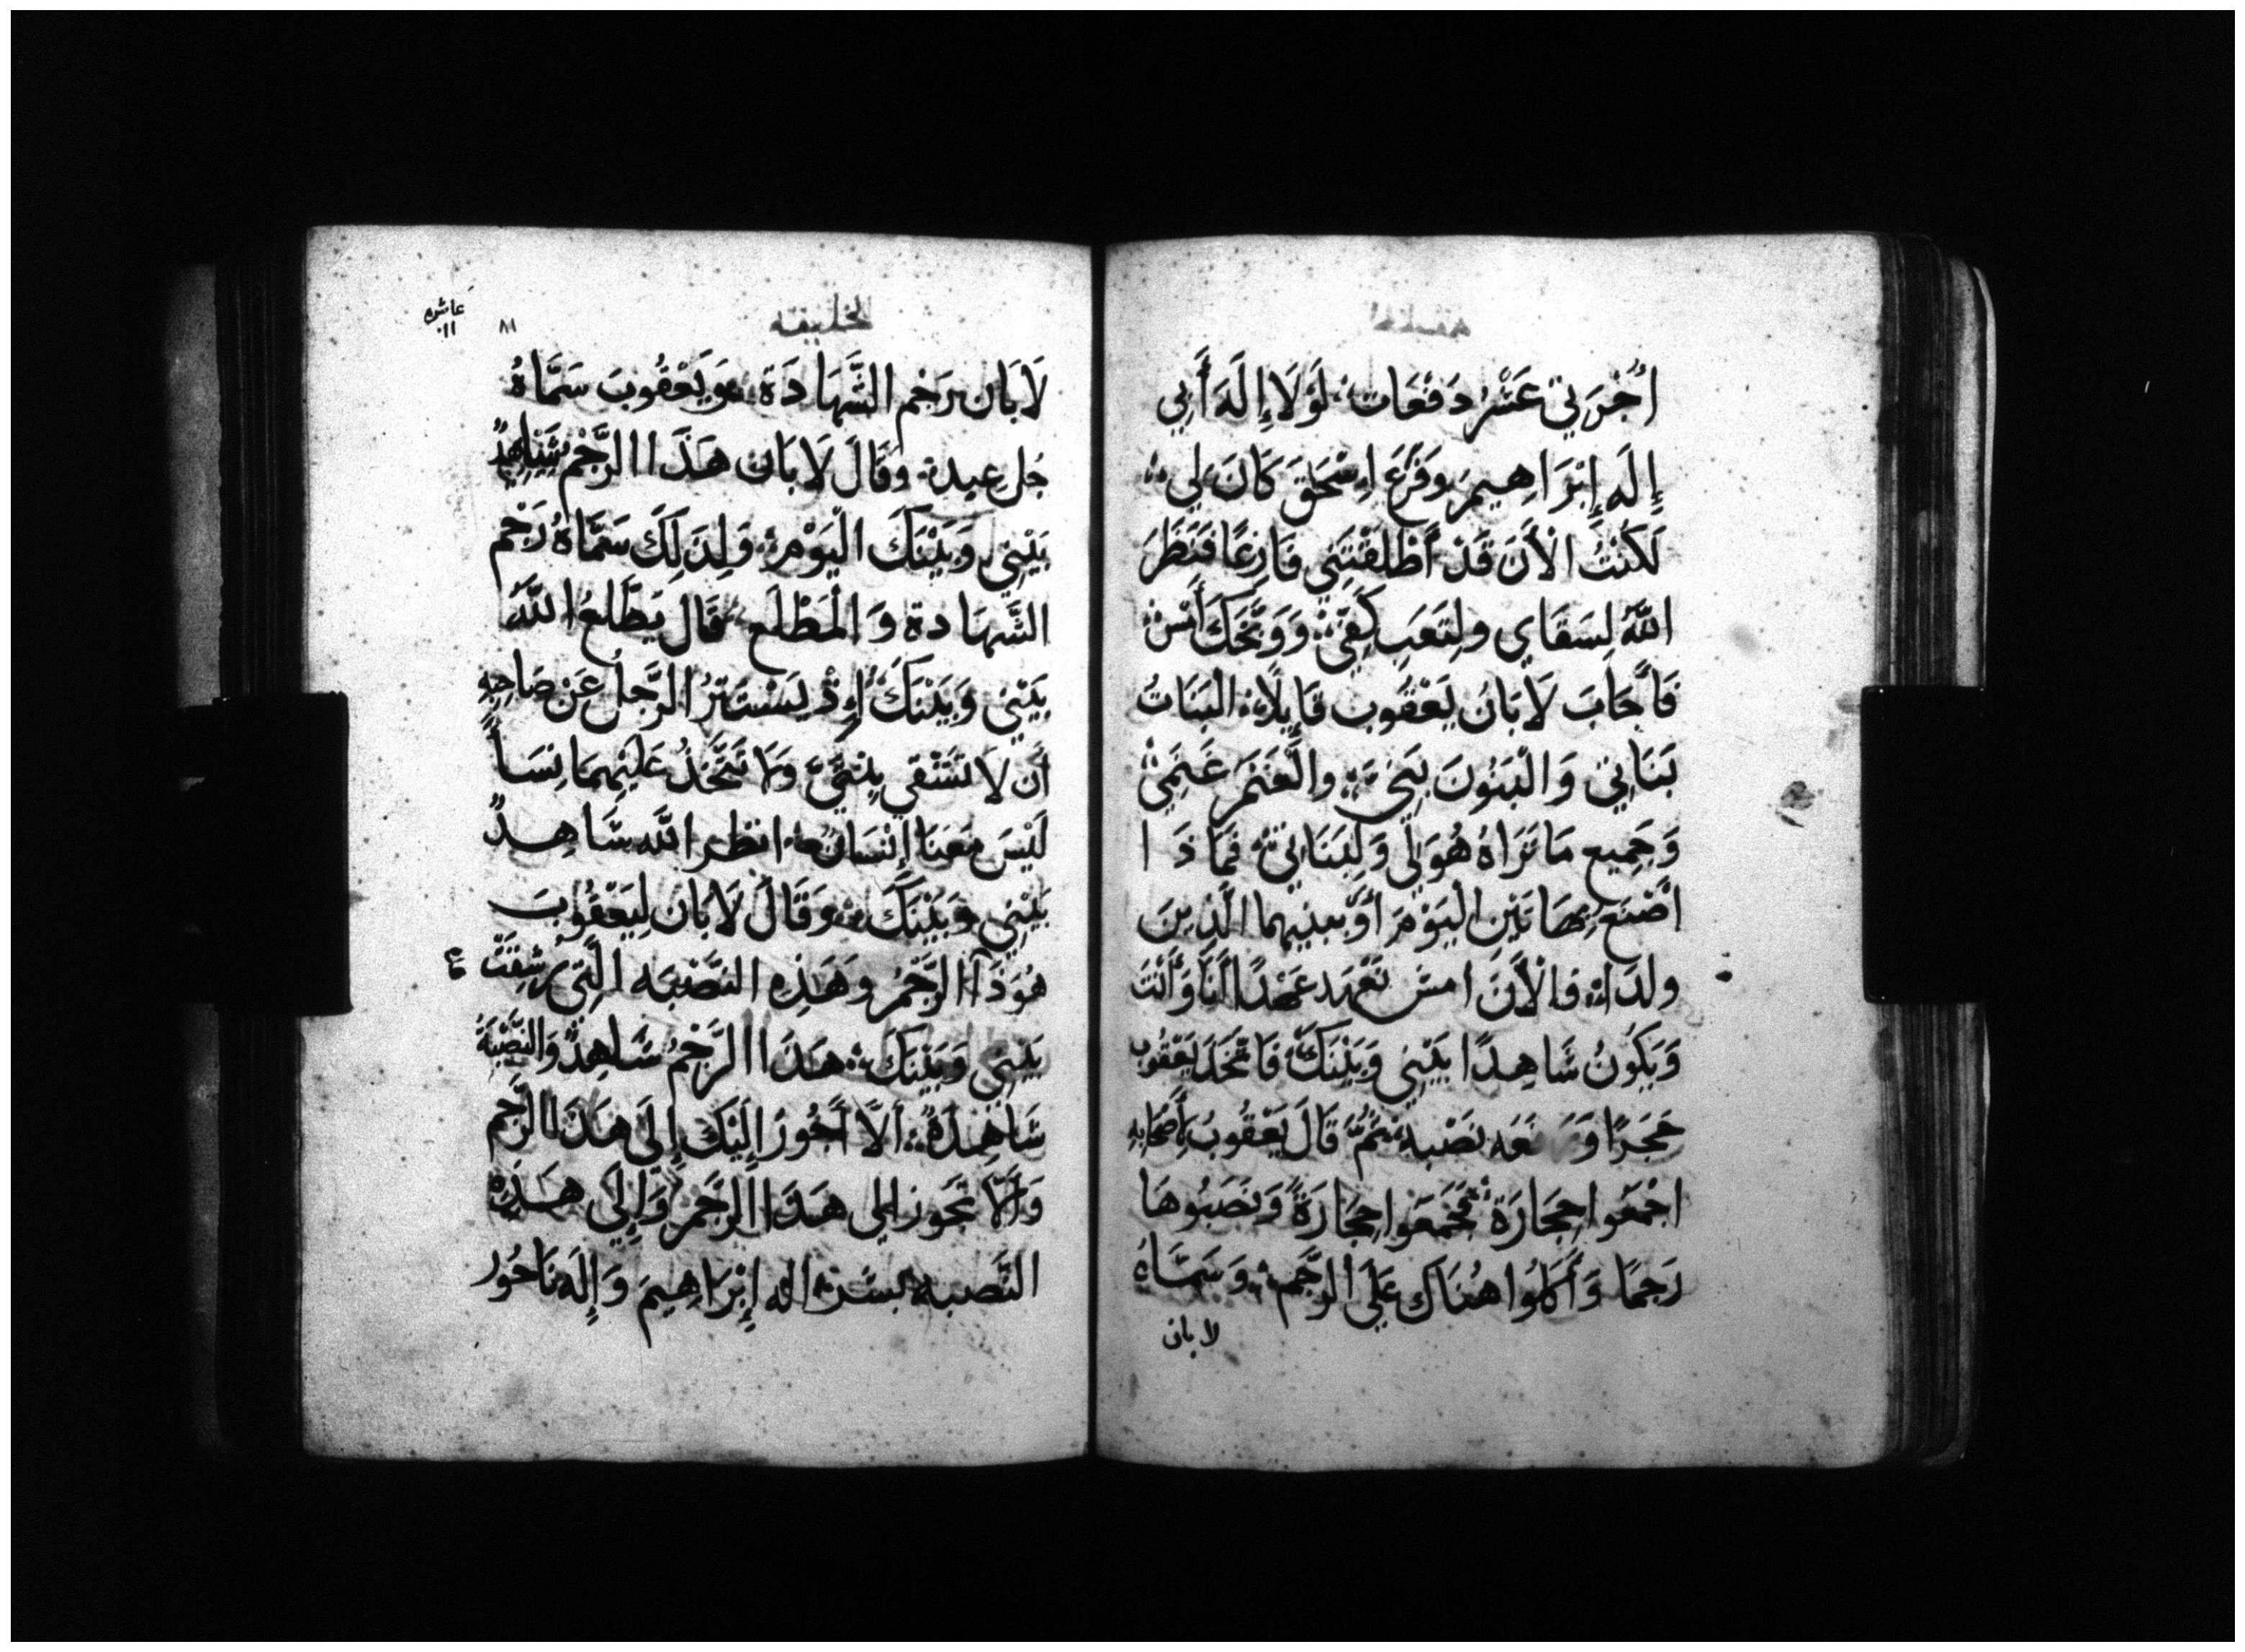 أُجْرَتِي عَشْرُ دَفْعَات لَوْلَا إِلَهَ أَبِي
إِلَه إِبْرَاهِيمَ وَفَزَعَ اِسْحَقَ كَانَ لِي
لَكُنْتُ الْأَنَ قَدْ أَطْلَقْتَنِي فَارِغًا فَنَظَرَ
اللَّهُ لِشَقَاي ولِتَعَبِ كَفَّيَّ وَوَبَّخَكَ أَمْسِ
فَأَجَابَ لَابَانُ يَعْقُوب قَايِلًا الْبَنَاتُ
بَنَاتِي وَالْبَنُونَ بَنِيَّ والْغَنَمَ غَنَمِيْ
وَجَمِيع مَا تَرَاهُ هُوَ لِي وَلِبَنَاتِي فَمَاذَا
اصْنَع بِهَاتَيْنِ الْيَوْمَ أَوْ بِبنِيهِما الَّذِينَ
ولدَا فالْأَنَ امش نَعْهَد عَهْدًا أَنَا وَأَنْتَ
وَيَكُونُ شَاهِدًا بَيْنِي وَبَيْنَكَ فَاتَّخَذَ يَعْقُوب
حَجَرًا وَ نَصْبه ثُمَّ قَالَ يَعْقُوبُ لِأَصْحَابِهِ
اجْمَعُوا حِجَارَةً فَجَمَعُوا حِجَارَةً وَنَصَبُوهَا
رَجمًا وَأَكَلُوا هُنَاكَ عَلَى الرَّجَمِ وَسَمَّاهُ
لابان
الخليقه
عاشره
١١
٨١
لَابَان رَجْم الشَّهَادَة وَيَعْقُوبَ سَمَّاهُ
جُل عيد وقَالَ لَابَان هَذَا الرَّجْمُ شَاهِدٌ
بَيْنِي وَبَيْنَكَ الْيَوْم وَلِذَلِكَ سَمَّاهُ رَجْم
الشَّهَادة وَالْمَطْلَع قَال يَطَّلِعُ اللَّهُ
بَيْنِي وَبَيْنَكَ إِذْ يَسْتَتِرُ الرَّجلُ عَنْ صَاحِبِهِ
أَن لا تشقي بِنْتَيَّ وَلَا تَتَّخِذُ عَلَيْهِمَا نِسَاً
لَيْسَ مَعَنَا إِنْسَانٌ انظر اللَّه شَاهِدٌ
بَيْنِي وَبَيْنَكَ وَقَالَ لَابَان لِيَعْقُوبَ
هُوَذَا الرَّجْمُ وَهَذِهِ النَّصْبَه الَّتِي
بَيْنِي وَبَيْنَكَ هَذَا الرَّجْمُ شَاهِدٌ وَالنَّصْبَةُ
شَاهِدَةٌ أَلَّا أَجُوزَ إِلَيْكَ إِلَى هَذَا الرَّجْم
وَأَلَّا تَجُوز إلى هَذَا الرَّجَمِ وَإِلَى هَذِهِ
النَّصبه بشر اله إِبْرَاهِيمَ وَإِلَه نَاحُور